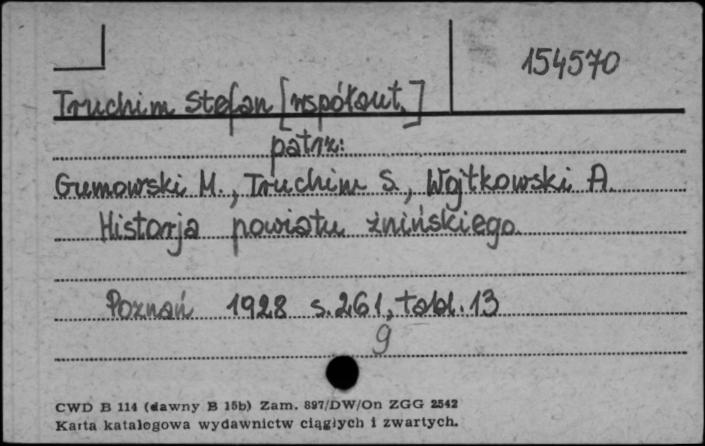 154570
Truchim Stefan [współaut.]
patrz:
Gumowski M., Truchim S., Wojtkowski A.
Historja powiatu żnińskiego.
Poznań 1928 s. 261, tabl. 13
9
CWD B 114 (dawny B 15b) Zam. 897/DW/On ZGG 2542
Karta katalogowa wydawnictw ciągłych i zwartych.